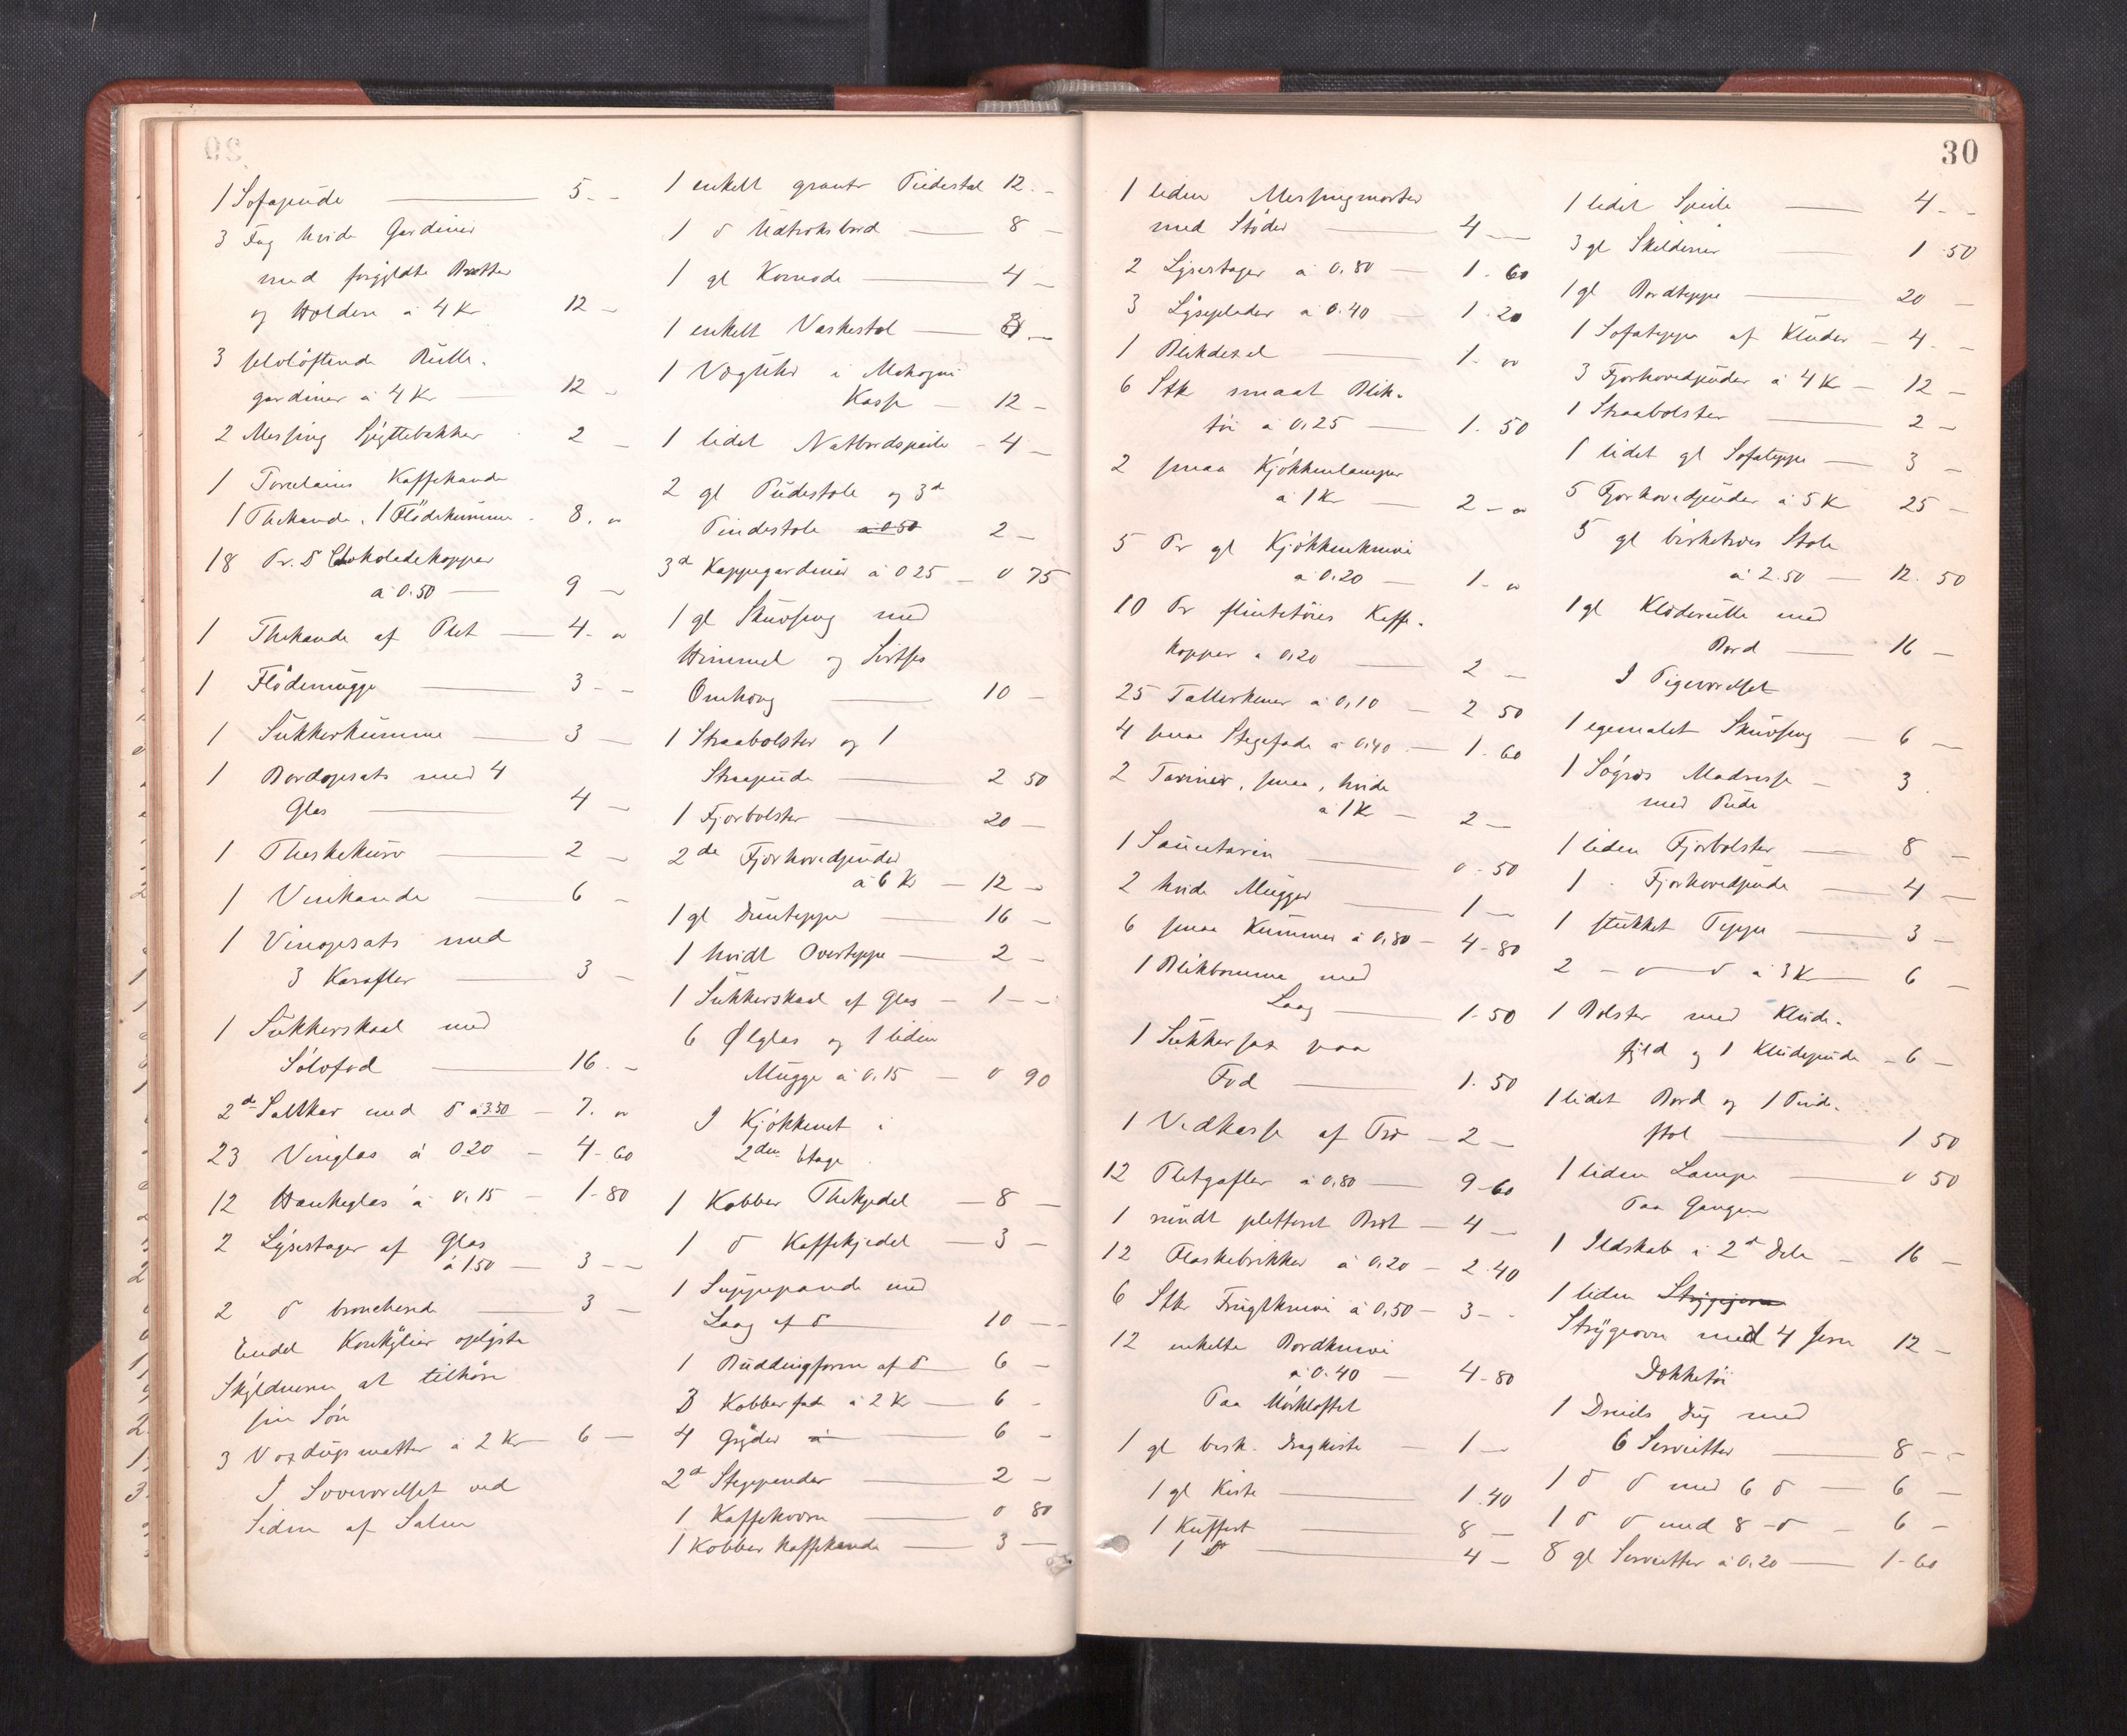 1 Sofapude — 5 - -
3 Fag hvide Gardiner
med forgyldte Bretter
og Holdere à 4 Kr 12 -
3 selvløftende Rulle-
gardiner à 4 Kr — 12 -
2 Messing Spyttebakker 2 -
1 Porcelains Kaffekande
1 Thekande, 1 Flødekumme - 8. "
18 Pr. D Chokoladekopper
à 0.50 — 9 -
1 Thekande af Plet — 4 - "
1 Flødemugge — 3 - -
1 Sukkerkumme — 3 -
1 Bordopsats med 4
Glas — 4 -
1 Theskekurv — 2 -
1 Vinkande — 6 -
1 Vinopsats med
3 Karafler — 3 -
1 Sukkerskaal med
Sølvfod — 16. -
2d Saltkar med D à 3.50 — 7. "
23 Vinglas à 0.20 — 4 - 60
12 Hankeglas à 0.15 — 1 - 80
2 Lysestager af Glas
à 1.50 — 3 - -
2 D broncherede — 3 -
Endel Konkylier oplyste
Skyldneren at tilhøre
sin Søn
3 Voxdugsmatter à 2 Kr — 6 -
I Soveværelset ved
Siden af Salen
1 enkelt Pidestal 12. -
1 D Udtræksbord — 8 -
1 gl Komode — 4 -
1 enkelt Vaskestol —
1 Vægtuhr i Mahogni
Kasse — 12 -
1 lidet Natbordspeile - 4 -
2 gl Pudestole og 3d
Pindestole à 0.50 2 -
3d Kappegardiner à 0 25 — 0 75
1 gl Skuvseng med
Himmel og Sirtses
Omhæng — 10 -
1 Straabolster og 1
Straapude — 2 50
1 Fjærbolster — 20 -
2de Fjærhovedpuder
à 6 Kr — 12 -
1 gl Dunteppe — 16 -
1 hvidt Overteppe — 2 -
1 Sukkerskaal af Glas — 1 - -
6 Ølglas og 1 liden
Mugge à 0.15 — 0 90
I Kjøkkenet i
2den Etage
1 Kobber Thekjedel — 8 -
1 D Kaffekjedel — 3 -
1 Suppepande med
Laag af D — 10 - -
1 Buddingform af D — 6 -
3 Kobberfade à 2 Kr — 6 -
4 Gryder à — 6 -
2d Stegpander — 2 -
1 Kaffekværn — 0 80
1 Kobber Kaffekande — 3 -
30
1 liden Messingmorter
med Støder — 4 -
2 Lysestager à 0.80 — 1 - 60
3 Lyseplader à 0.40 — 1 - 20
1 Blikdesel — 1. "
6 Stk smaat Blik-
tøi à 0.25 — 1. 50
2 smaa Kjøkkenlamper
à 1 Kr — 2 - "
5 Pr gl Kjøkkenknive
à 0.20 — 1 - "
10 Pr flintetøies Kaffe-
kopper à 0.20 — 2 -
25 Tallerkener à 0.10 — 2 50
4 smaa Stegefade à 0.40 — 1 - 60
2 Tariner, smaa, hvide
à 1 Kr — 2 -
1 Saucetarin — 0 - 50
2 hvide Mugger — 1 -
6 smaa Kummer à 0.80 — 4 - 80
1 Blikbomme med
Laag — 1 - 50
1 Sukkersax paa
Fod — 1. 50
1 Vedkasse af Træ — 2 -
12 Pletgafler à 0.80 — 9 - 60
1 rundt pletteret Bret — 4 -
12 Flaskebrikker à 0.20 — 2. 40
6 Stk Frugtknive à 0.50 — 3 - -
12 enkelte Bordknive
à 0.40 — 4 - 80
Paa Mørkloftet
1 gl birk. Dragkiste — 1 -
1 gl Kiste — 1. 40
1 Kuffert — 8 -
1 D — 4 -
1 lidet Speile — 4 - -
3 gl Skilderier 1 50
1 gl Bordteppe — 20 -
1 Sofateppe af Kluder — 4. -
3 Fjærhovedpuder à 4 Kr — 12 -
1 Straabolster — 2 -
1 lidet gl Sofateppe — 3 -
5 Fjærhovedpuder à 5 Kr 25 -
5 gl birketræes Stole
à 2.50 — 12. 50
1 gl Klæderulle med
Bord — 16 -
I Pigeværelset
1 egemalet Skuvseng — 6 -
1 Søgræs Madrasse — 3
med Pude
1 liden Fjærbolster — 8 -
1 - Fjærhovedpude — 4 -
1 stukket Teppe — 3 -
2 — D — D à 3 Kr — 6 -
1 Bolster med Klude-
fyld og 1 Kludepude - 6 -
1 lidet Bord og 1 Pinde-
stol — 1 50
1 liden Lampe — 0 50
Paa Gangen
1 Ildskab i 2d Dele — 16 -
1 liden Strygejern
Strygeovn med 4 Jern 12 -
Dækketøi
1 Dreils Dug med
6 Servietter — 8 - -
1 D D med 6 D — 6 -
1 D D med 8 - D — 6 -
8 gl Servietter à 0.20 — 1 - 60